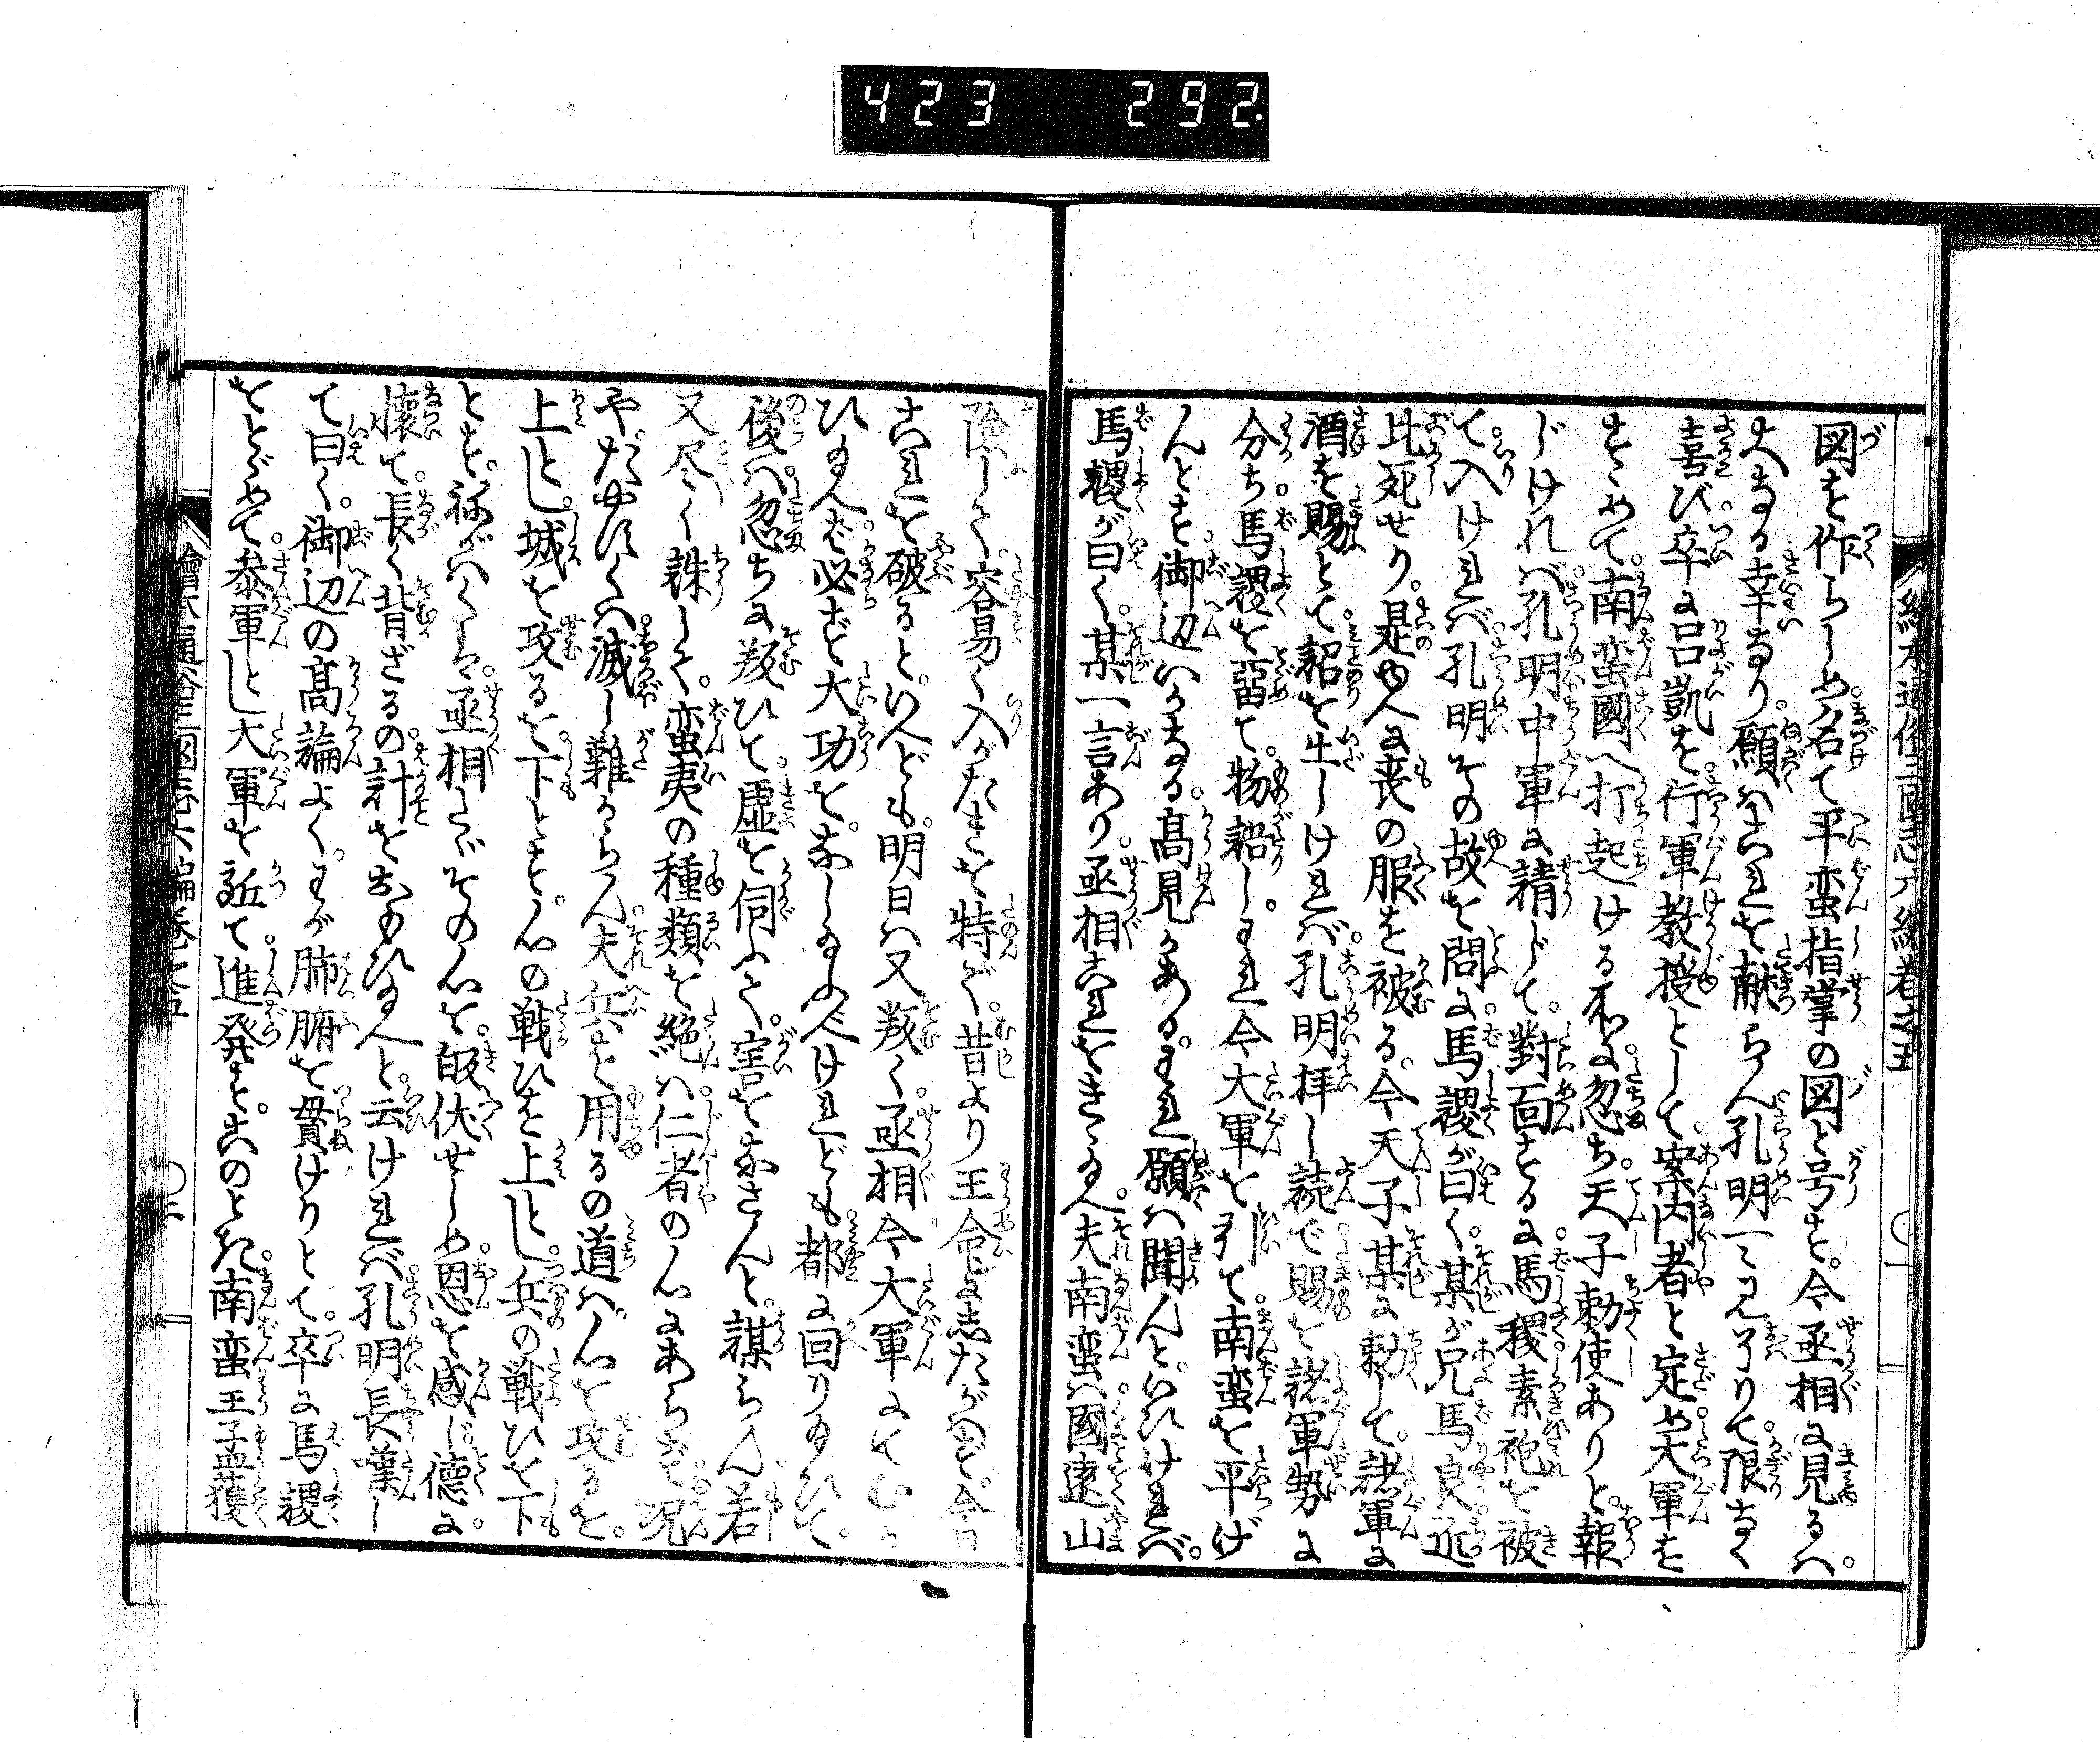 423 292
図を作らしめ名て平蛮指掌の図と号す。今丞相に見るハ。
大なる幸なり。願ハこれを献らん孔明一々見了りて限なく
喜び卒に呂凱を行軍教授として。案内者と定め大軍を
すゝめて。南蛮國へ打起ける所に忽ち天子勅使ありと報
じけれバ孔明中軍に請じて。對面するに馬稷素袍を被
て入けれバ孔明その故を問に馬謖が曰く。某が兄馬良近
比死せり。是ゆへに喪の服を被る。今天子某に勅して。諸軍に
酒を賜とて。詔を出しけれバ。孔明拝し読で賜を諸軍勢に
分ち馬謖を畱て。物語し。われ今大軍を引て。南蛮を平げ
んとす御辺ハいかなる。髙見かある。われ願くハ聞んと。いひけれバ。
馬謖が曰く。某一言あり。丞相これをきゝ給へ。夫南蛮ハ國遠山
險しく。容易く入がたきを特ど。昔より王命に志たがハず。今日
これを破るといへども。明日ハ又叛く。丞相今大軍にてむか
ひ給ハヾ必ず大功をなし給ふべけれども都に回り給ひて。
後ハ忽ちに叛ひて。虚を伺ふて。害をなさんと。謀らん若
又尽く誅して。蛮夷の種類を絶バ仁者の心にあらず。况
や。たやすくハ滅し難からん夫兵を用るの道ハ心を攻るを。
上とし。城を攻るを。下とす。心の戦ひを上とし。兵の戦ひを下
とす。祢がハくハ。丞相たゞその心を。皈伏せしめ恩を感じ德に
懐て。長く背ざるの計をおもひ給へと。云けれバ。孔明長嘆し
て曰く。御辺の髙論よく。わが肺腑を貫けりとて。卒に馬謖
をとゞめて。参軍とし大軍を延て。進発す。このとき。南蛮王孟獲